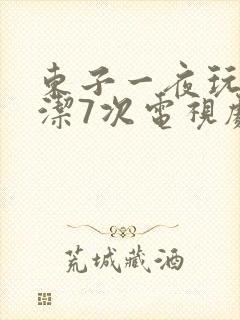 東子一夜玩
潔7次電視
荒城藏酒